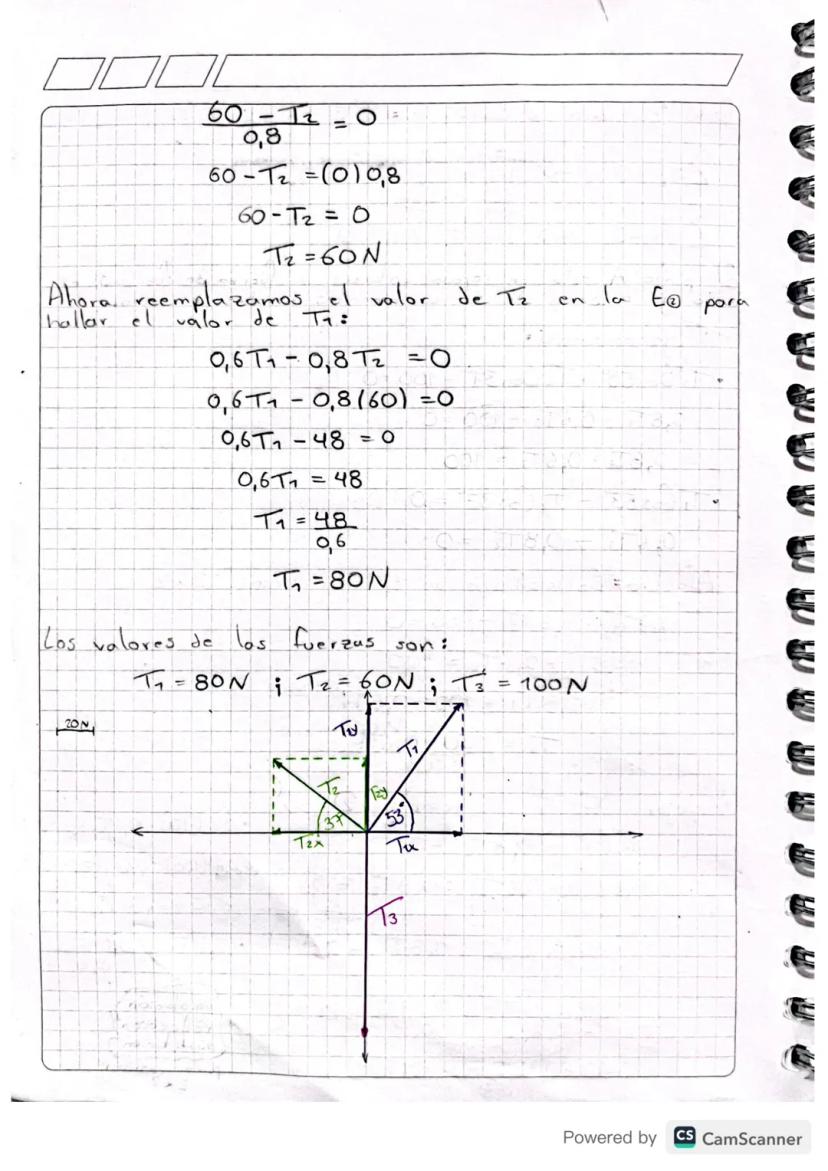 60 - T2 / 0,8 = 0
60 - T2 = (0) 0,8
60 - T2 = 0
T2 = 60 N
Ahora reemplazamos el valor de T2 en la E② para
hallar el valor de T1:
0,6T1 - 0,8T2 = 0
0,6T1 - 0,8(60) = 0
0,6T1 - 48 = 0
0,6T1 = 48
T1 = 48 / 0,6
T1 = 80 N
Los valores de los fuerzas son:
T1 = 80 N ; T2 = 60 N ; T3 = 100 N
20 N
T1y
T1
T2
T2y
37°
53°
T2x
T1x
T3
Powered by CS CamScanner